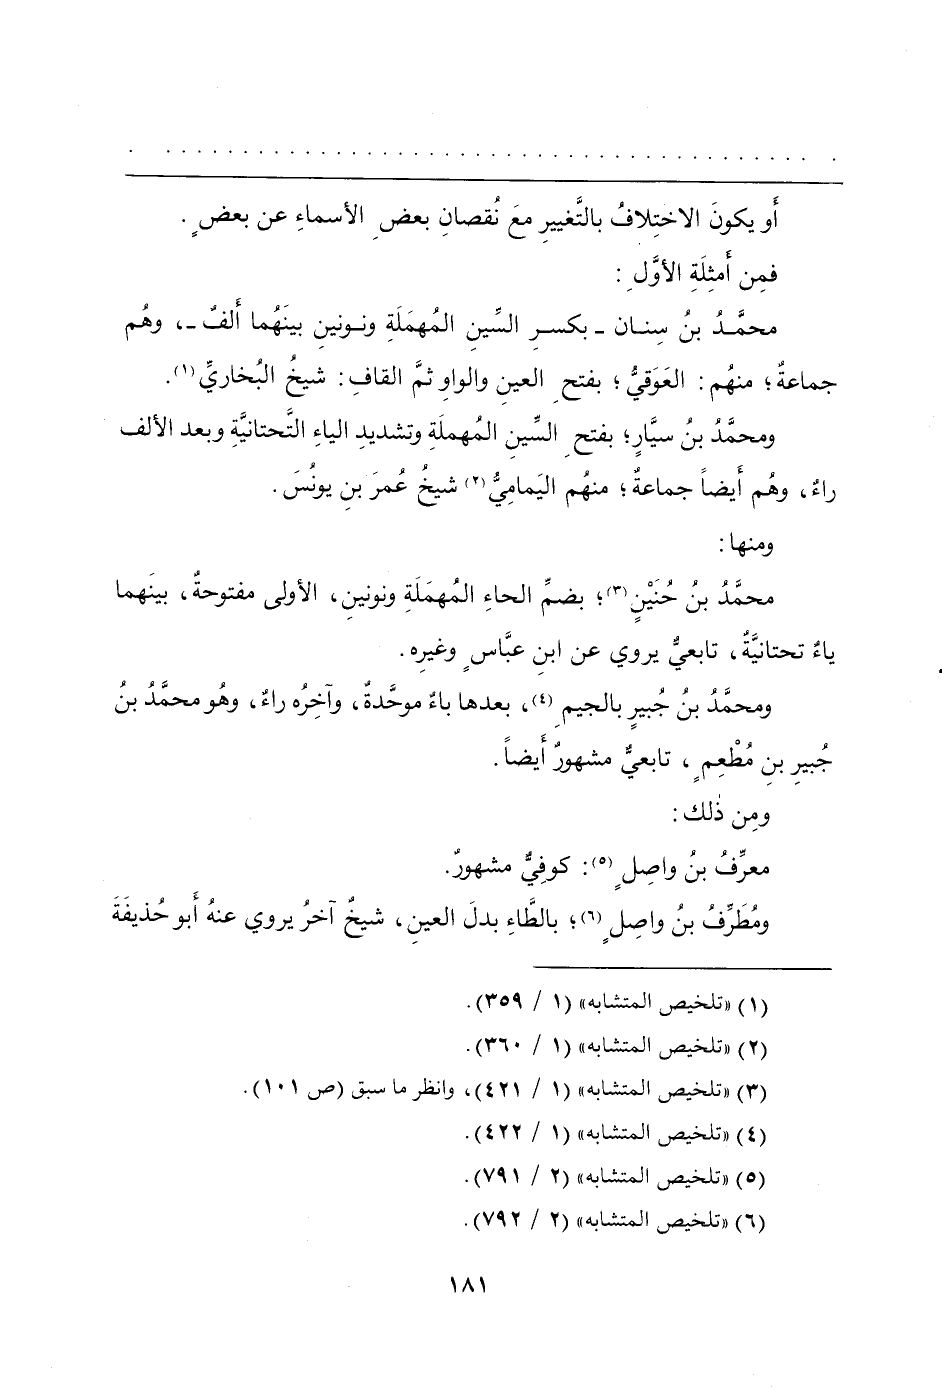 أَو يكونَ الاختِلافُ بالتَّغييرِ معَ نُقصانِ بعضِ الأسماءِ عن بعضٍ .
فمِن أَمثِلَةِ الأوَّلِ :
محمَّدُ بنُ سِنان ـ بكسرِ السِّينِ المُهمَلَةِ ونونينِ بينَهُما أَلفٌ ـ، وهُم
جماعةٌ ؛ منهُم : العَوَقيُّ ؛ بفتحِ العينِ والواوِ ثمَّ القافِ : شيخُ البُخاريِّ (١).
ومحمَّدُ بنُ سيَّارٍ؛ بفتحِ السِّينِ المُهملَةِ وتشديدِ الياءِ التَّحتانيَّةِ وبعد الألف
راءٌ، وهُم أَيضاً جماعةٌ ؛ منهُم اليَمامِيُّ (٢) شيخُ عُمرَ بنِ يونُسَ .
ومنها :
محمَّدُ بنُ حُنَيْنٍ (٣)؛ بضمِّ الحاءِ المُهمَلَةِ ونونينِ، الأولى مفتوحةٌ، بينَهما
ياءٌ تحتانيَّةٌ، تابعيٌّ يروي عن ابنِ عبَّاسٍ وغيرِه .
ومحمَّدُ بنُ جُبيرٍ بالجيمِ (٤)، بعدها باءٌ موحَّدةٌ، وآخِرُه راءٌ، وهُو محمَّدُ بنُ
جُبيرِ بنِ مُطْعِمٍ، تابعيٌّ مشهورٌ أَيضاً .
ومِن ذٰلك :
معرِّفُ بنُ واصِلٍ (٥): كوفِيٌّ مشهورٌ.
ومُطَرِّفُ بنُ واصِلٍ (٦)؛ بالطَّاءِ بدلَ العينِ، شيخٌ آخرُ يروي عنهُ أَبو حُذيفَةَ
(١) «تلخيص المتشابه» (١ / ٣٥٩).
(٢) «تلخيص المتشابه» (١ / ٣٦٠).
(٣) «تلخيص المتشابه» (١ / ٤٢١)، وانظر ما سبق (ص ١٠١).
(٤) «تلخيص المتشابه» (١ / ٤٢٢).
(٥) «تلخيص المتشابه» (٢ / ٧٩١).
(٦) «تلخيص المتشابه» (٢ / ٧٩٢).
١٨١